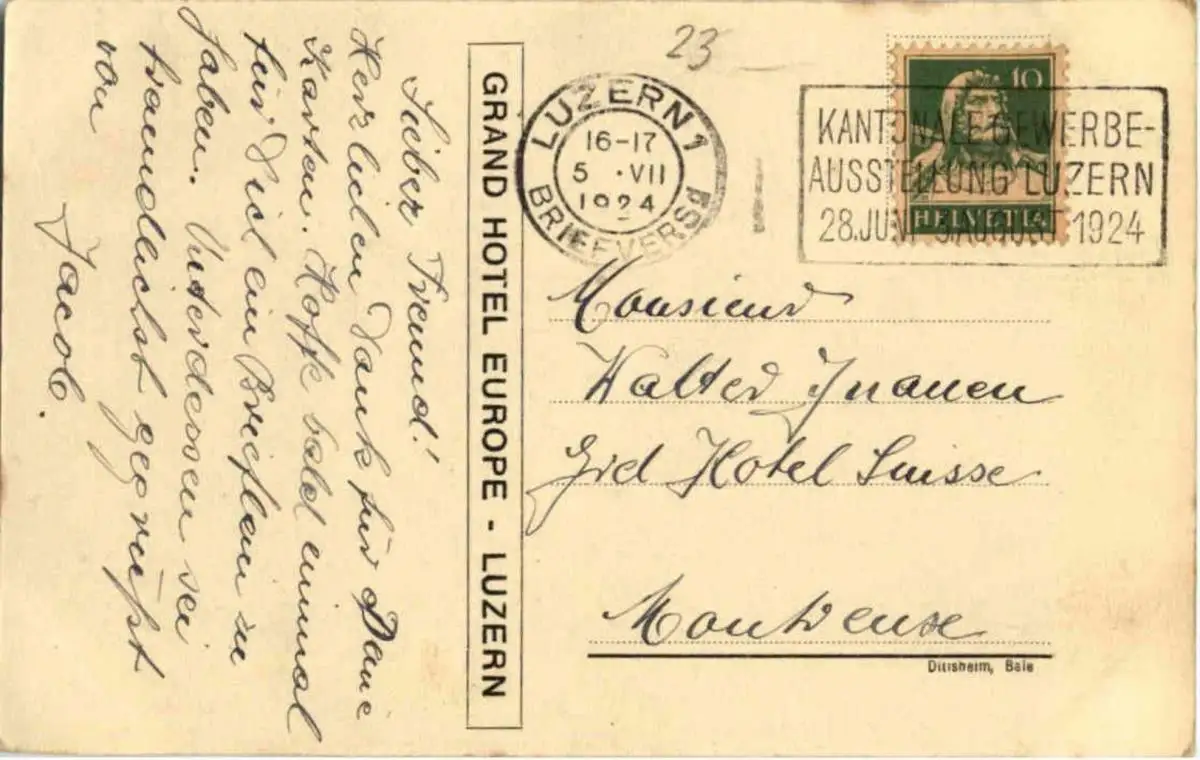 Lieber Freund!
Herzlichen Dank für Deine
Karten. Hoffe bald einmal
für Dich ein Brieflein zu
haben. Unterdessen sei
freundlichst gegrüßt
von
Jacob.
GRAND HOTEL EUROPE - LUZERN
23
LUZERN 1
16-17
5 . VII
1924
BRIEFVERSd
10
HELVETIA
KANTONALE GEWERBE-
AUSSTELLUNG LUZERN
28. JUNI 3. AUGUST 1924
Monsieur
Walter Inauen
Grd Hotel Suisse
Montreuse
Ditisheim, Bale